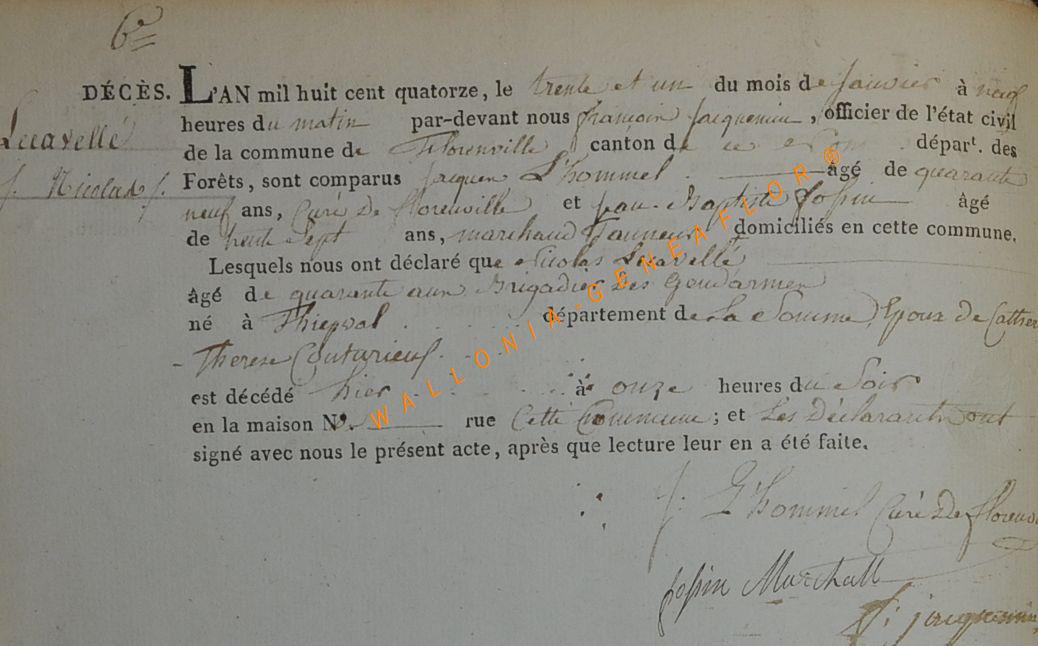 6e
DÉCÈS. L'AN mil huit cent quatorze, le trente et un du mois de janvier à neuf
heures du matin par-devant nous françois jacquemin, officier de l'état civil
Lecavellé
de la commune de Florenville canton de ce dépar^t. des
Nicolas Forêts, sont comparus jacques L'hommel âgé de quarante
neuf ans, Curé De florenville et jean-Baptiste Jossin âgé
de trente Sept ans, marchand Tanneur domiciliés en cette commune.
Lesquels nous ont déclaré que Nicolas Lecavellé
âgé de quarante Brigadier Des Gendarmes
né à Thiepval département de La Somme, Epoux de Cather
Therese
est décédé hier à onze heures du Soir
en la maison N°. rue Cette Commune; et Les Déclarants ont
signé avec nous le présent acte, après que lecture leur en a été faite.
j. L'hommel Curé De florenv
jossin Marchall
f: jacquemin
WALLONIA-GENEAFLOR ®